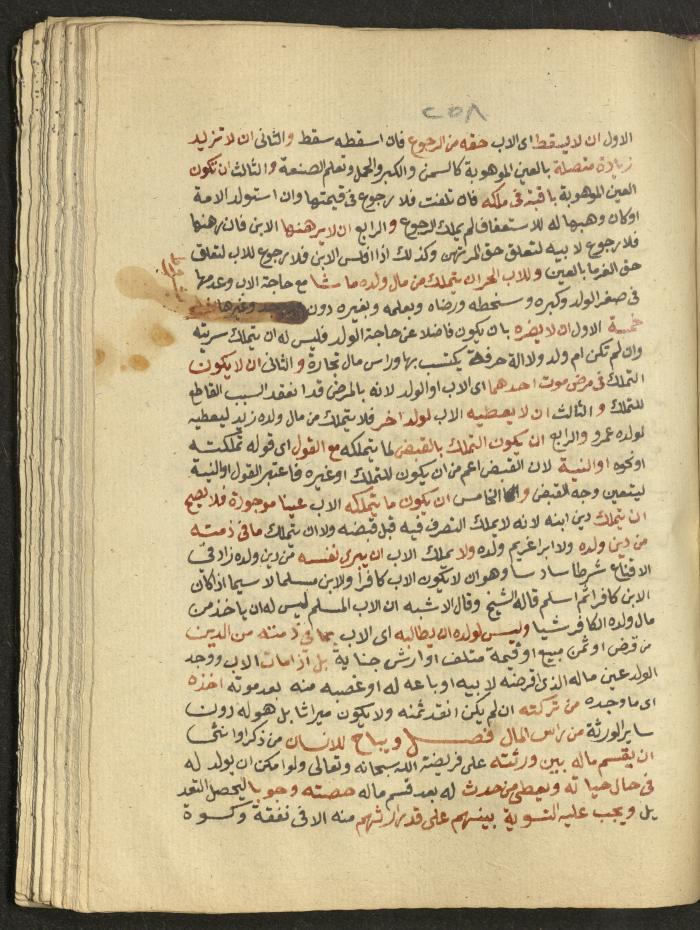 ٢٥٨
الاول ان لا يسقط اى الاب حقه من الرجوع فان اسقطه سقط والثانى ان لا تزيد
زيادة متصلة بالعين الموهوبة كالسمن والكبر والحمل وتعلم الصنعة والثالث ان تكون
العين الموهوبة باقية فى ملكه فان تلفت فلا رجوع فى قيمتها وان استولد الامة
او كان وهبها له للاستعفاف لم يملك الرجوع والرابع ان لا يرهنها الابن فان رهنها
فلا رجوع لابيه لتعلق حق المرتهن وكذلك اذا افلس الابن فلا رجوع للاب لتعلق
حق الغرما بالعين وللاب الحر ان يتملك من مال ولده ما شا مع حاجة الاب وعدمها
فى صغر الولد وكبره وسخطه ورضاه وبعلمه وبغيره دون وغيرها
خمسة الاول ان لا يضره بان يكون فاضلا عن حاجة الولد فليس له ان يتملك سريته
وان لم تكن ام ولد ولا الة حرفة يكتسب بها وراس مال تجارة والثانى ان لا يكون
التملك فى مرض موت احدهما اى الاب او الولد لانه بالمرض قد انعقد السبب القاطع
للتملك والثالث ان لا يعطيه الاب لولد اخر فلا يتملك من مال ولده زيد ليعطيه
لولده عمرو والرابع ان يكون التملك بالقبض لما يتملكه مع القول اى قوله تملكته
او نحوه او النية لان القبض اعم من ان يكون للتملك او غيره فاعتبر القول او النية
ليتعين وجه القبض والخامس ان يكون ما يتملكه الاب عينا موجودة فلا يصح
ان يتملك دين ابنه لانه لا يملك التصرف فيه قبل قبضه ولا ان يتملك ما فى ذمته
من دين ولده ولا ابرا غريم ولده ولا يملك الاب ان يبرى نفسه من دين ولده زاد فى
الاقناع شرطا سادسا وهو ان لا يكون الاب كافرا والابن مسلما لا سيما اذا كان
الابن كافرا ثم اسلم قاله الشيخ وقال الاشبه ان الاب المسلم ليس له ان ياخذ من
مال ولده الكافر شيا وليس لولده ان يطالبه اى الاب بما فى ذمته من الدين
من قرض او ثمن مبيع او قيمة متلف او ارش جناية بل اذا مات الاب ووجد
الولد عين ماله الذى اقرضه لابيه او باعه له او غصبه منه بعد موته اخذه
اى ما وجده من تركته ان لم يكن انقد ثمنه ولا يكون ميراثا بل هو له دون
ساير الورثة من راس المال فصل ويباح للانسان من ذكر او انثى
ان يقسم ماله بين ورثته على فريضة الله سبحانه وتعالى ولو امكن ان يولد له
فى حال حياته ويعطى من حدث له بعد قسم ماله حصته وجوبا ليحصل التعد
يل ويجب عليه التسوية بينهم على قدر ارثهم منه الا فى نفقة وكسوة